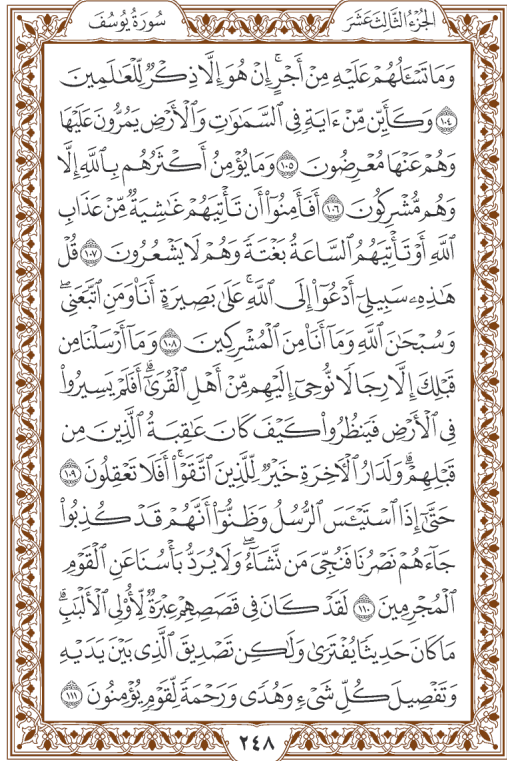 الجُزْءُ الثَّالِثَ عَشَرَ
سُورَةُ يُوسُفَ
وَمَا تَسْـَٔلُهُمْ عَلَيْهِ مِنْ أَجْرٍۚ إِنْ هُوَ إِلَّا ذِكْرٌ لِّلْعَٰلَمِينَ
١٠٤ وَكَأَيِّن مِّنْ ءَايَةٍ فِى ٱلسَّمَٰوَٰتِ وَٱلْأَرْضِ يَمُرُّونَ عَلَيْهَا
وَهُمْ عَنْهَا مُعْرِضُونَ ١٠٥ وَمَا يُؤْمِنُ أَكْثَرُهُم بِٱللَّهِ إِلَّا
وَهُم مُّشْرِكُونَ ١٠٦ أَفَأَمِنُوٓا۟ أَن تَأْتِيَهُمْ غَٰشِيَةٌ مِّنْ عَذَابِ
ٱللَّهِ أَوْ تَأْتِيَهُمُ ٱلسَّاعَةُ بَغْتَةً وَهُمْ لَا يَشْعُرُونَ ١٠٧ قُلْ
هَٰذِهِۦ سَبِيلِىٓ أَدْعُوٓا۟ إِلَى ٱللَّهِۚ عَلَىٰ بَصِيرَةٍ أَنَا۠ وَمَنِ ٱتَّبَعَنِىۖ
وَسُبْحَٰنَ ٱللَّهِ وَمَآ أَنَا۠ مِنَ ٱلْمُشْرِكِينَ ١٠٨ وَمَآ أَرْسَلْنَا مِن
قَبْلِكَ إِلَّا رِجَالًا نُّوحِىٓ إِلَيْهِم مِّنْ أَهْلِ ٱلْقُرَىٰٓۗ أَفَلَمْ يَسِيرُوا۟
فِى ٱلْأَرْضِ فَيَنظُرُوا۟ كَيْفَ كَانَ عَٰقِبَةُ ٱلَّذِينَ مِن
قَبْلِهِمْۗ وَلَدَارُ ٱلْأَخِرَةِ خَيْرٌ لِّلَّذِينَ ٱتَّقَوْا۟ۚ أَفَلَا تَعْقِلُونَ ١٠٩
حَتَّىٰٓ إِذَا ٱسْتَيْـَٔسَ ٱلرُّسُلُ وَظَنُّوٓا۟ أَنَّهُمْ قَدْ كُذِبُوا۟
جَآءَهُمْ نَصْرُنَا فَنُجِّىَ مَن نَّشَآءُۖ وَلَا يُرَدُّ بَأْسُنَا عَنِ ٱلْقَوْمِ
ٱلْمُجْرِمِينَ ١١٠ لَقَدْ كَانَ فِى قَصَصِهِمْ عِبْرَةٌ لِّأُو۟لِى ٱلْأَلْبَٰبِۗ
مَا كَانَ حَدِيثًا يُفْتَرَىٰ وَلَٰكِن تَصْدِيقَ ٱلَّذِى بَيْنَ يَدَيْهِ
وَتَفْصِيلَ كُلِّ شَىْءٍ وَهُدًى وَرَحْمَةً لِّقَوْمٍ يُؤْمِنُونَ ١١١
٢٤٨